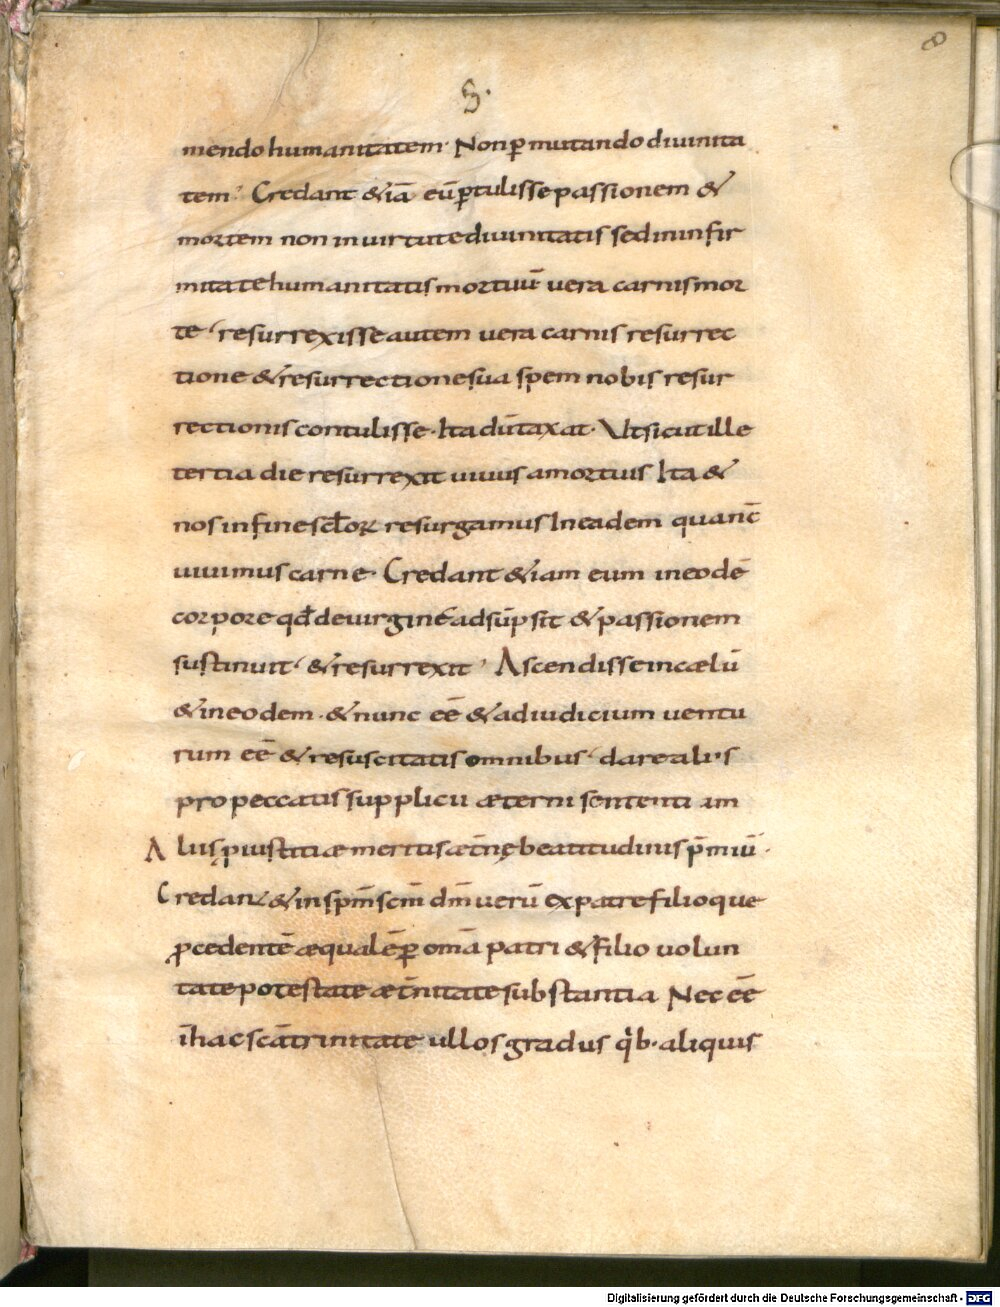 8
8.
mendo humanitatem· Non p̄ mutando diuinita
tem· Credant &iā eū p̄tulisse passionem &
mortem non in uirtute diuinitatis sed in infir
mitate humanitatis mortuū uera carnis mor
te· resurrexisse autem uera carnis resurrec
tione & resurrectione sua spem nobis resur
rectionis contulisse· Ita dūtaxat· Ut sicut ille
tertia die resurrexit uiuus a mortuis Ita &
nos in fine scl̄oꝝ resurgamus In eadem qua nc̄
uiuimus carne· Credant &iam eum in eodē
corpore qd̄ de uirgine adsūpsit & passionem
sustinuit· & resurrexit· Ascendisse in cælū
& in eodem· & nunc eē & ad iudicium uentu
rum eē & resuscitatis omnibus· dare aliis
pro peccatis supplicii æterni sententiam
Aliis p iustitiæ meritis æt̄nę beatitudinis p̄miū·
Credant & in sp̄m sc̄m dm̄ uerū ex patre filioque
ꝓcedentē æqualē p̄ omīa patri & filio uolun
tate potestate æt̄nitate substantia Nec eē
ī hac scā trinitate ullos gradus qͥb· aliquis
Digitalisierung gefördert durch die Deutsche Forschungsgemeinschaft - DFG